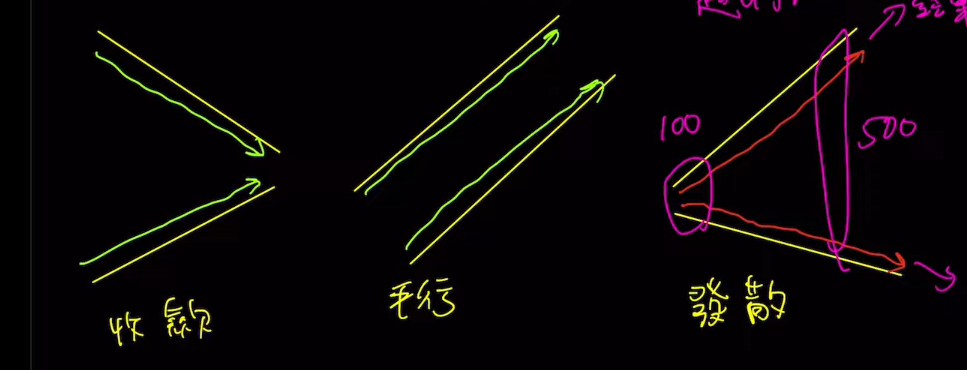 100
500
收歛
平行
發散